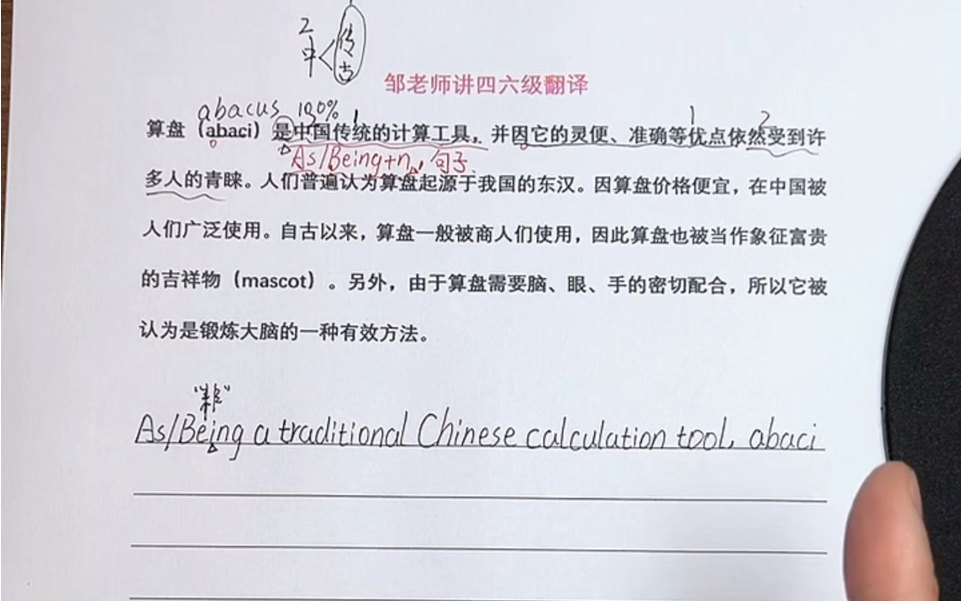 2 传
中 < 古
邹老师讲四六级翻译
abacus 100% 1 1 2
算盘（abaci）是中国传统的计算工具，并因它的灵便、准确等优点依然受到许
As/Being+n, 句子
多人的青睐。人们普遍认为算盘起源于我国的东汉。因算盘价格便宜，在中国被
人们广泛使用。自古以来，算盘一般被商人们使用，因此算盘也被当作象征富贵
的吉祥物（mascot）。另外，由于算盘需要脑、眼、手的密切配合，所以它被
认为是锻炼大脑的一种有效方法。
As/Being a traditional Chinese calculation tool, abaci